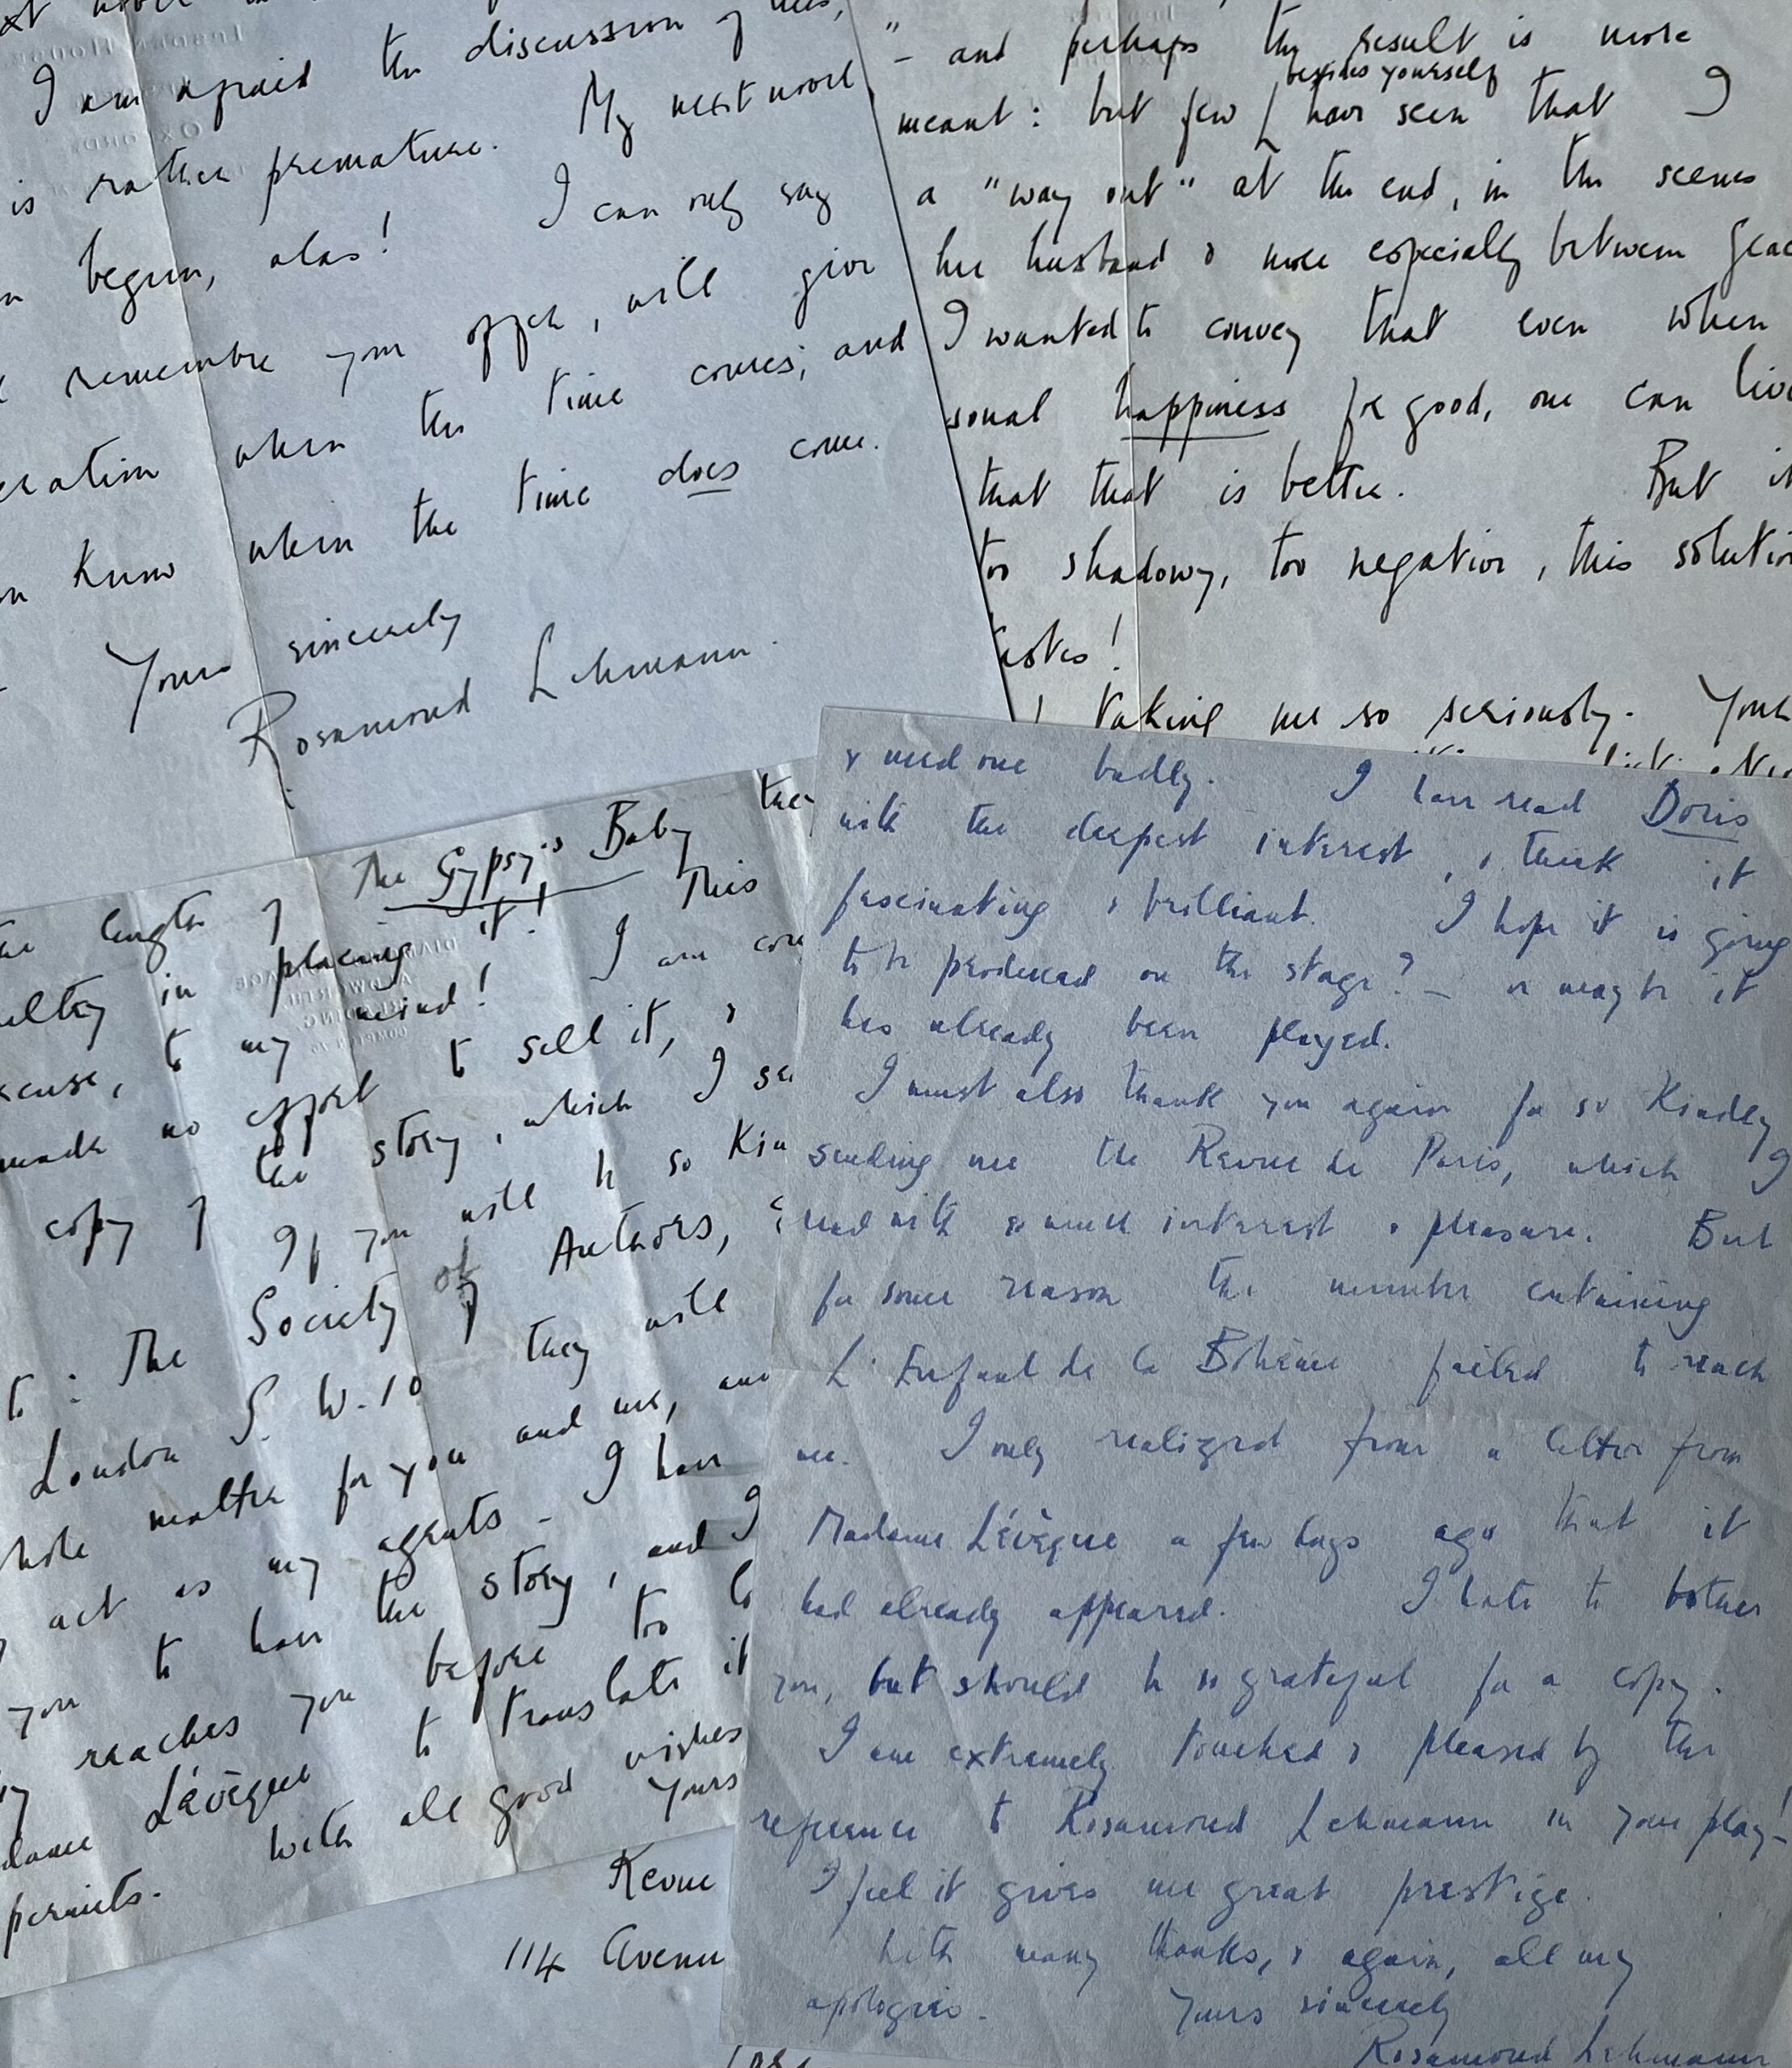 I am afraid the discussion of
is rather premature. My next novel
begun, alas! I can only say
remember your offer, will give
when the time comes; and
know when the time does come.
Yours sincerely
Rosamond Lehmann.
- and perhaps the result is more
besides yourself
meant: but few have seen that I
a "way out" at the end, in the scenes
her husband & more especially between
I wanted to convey that even when
sonal happiness for good, one can
that that is better. But
too shadowy, too negative, this
taking me so seriously.
The Gypsy's Baby
length of
in placing it! This
to my mind! I am
made no effort to sell it, &
copy of the story, which I
If you will be so
to: The Society of Authors,
London S.W.10 they will
matter for you and me,
act as my agents - I have
you to have the story, and I
reaches you before too
Lévêque to translate it
permits. With all good wishes
Yours
Revue
114 Avenu
& need one badly. I have read Doris
with the deepest interest, & think it
fascinating & brilliant. I hope it is going
to be produced on the stage? - or maybe it
has already been played.
I must also thank you again for so kindly
sending me the Revue de Paris, which I
read with so much interest & pleasure. But
for some reason the number containing
L'Enfant de la Bohème failed to reach
me. I only realized from a letter from
Madame Lévêque a few days ago that it
had already appeared. I hate to bother
you, but should be so grateful for a copy.
I am extremely touched & pleased by the
reference to Rosamond Lehmann in your play -
I feel it gives me great prestige.
With many thanks, & again, all my
apologies. Yours sincerely
Rosamond Lehmann